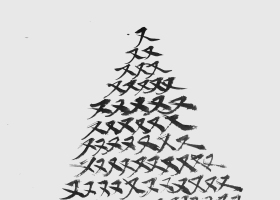 又
又又
又又又
又又又又又
又又又又又
又又又又又又
又又又又又又
又又又又又又又又
又又又又又又又又又